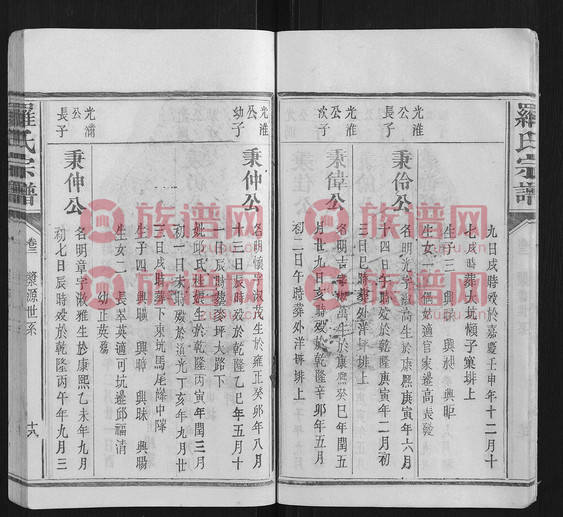 羅氏宗譜
九日戌時歿於嘉慶壬申年十二月十
七戌時葬大坑
生子三 興
生女一
光淮
公
秉伶公
名明光字淑高生於康熙庚寅年六月
十四日午時歿於乾隆庚寅年二月初
三日巳時葬外洋坪排上
光淮
公
次子
秉偉公
名明吉字淑萬生於康熙癸巳年閏五
月廿九日亥時歿於乾隆辛卯年五月
初二日午時葬外洋坪排上
光淮
公
幼子
秉仲公
名明懷字淑茂生於雍正癸卯年八月
十三日辰時歿於乾隆乙巳年五月十
一日辰時葬麥坪大路下
姚邱氏桂娘生於乾隆丙寅年閏三月
初一日未時歿於道光丁亥年九月廿
三日戌時葬下東坑馬尾條中陣
生子四 興 興 興昧 興暘
生女二 長萃英適可坑邊邱福清
幼正英殤
光浦
公
長子
秉伸公
名明章字淑雅生於康熙乙未年九月
初七日辰時歿於乾隆丙午年九月三
羅氏宗譜
卷三
世系
族谱网
zupu.cn
族谱网
zupu.cn
族谱网
zupu.cn
族谱网
zupu.cn